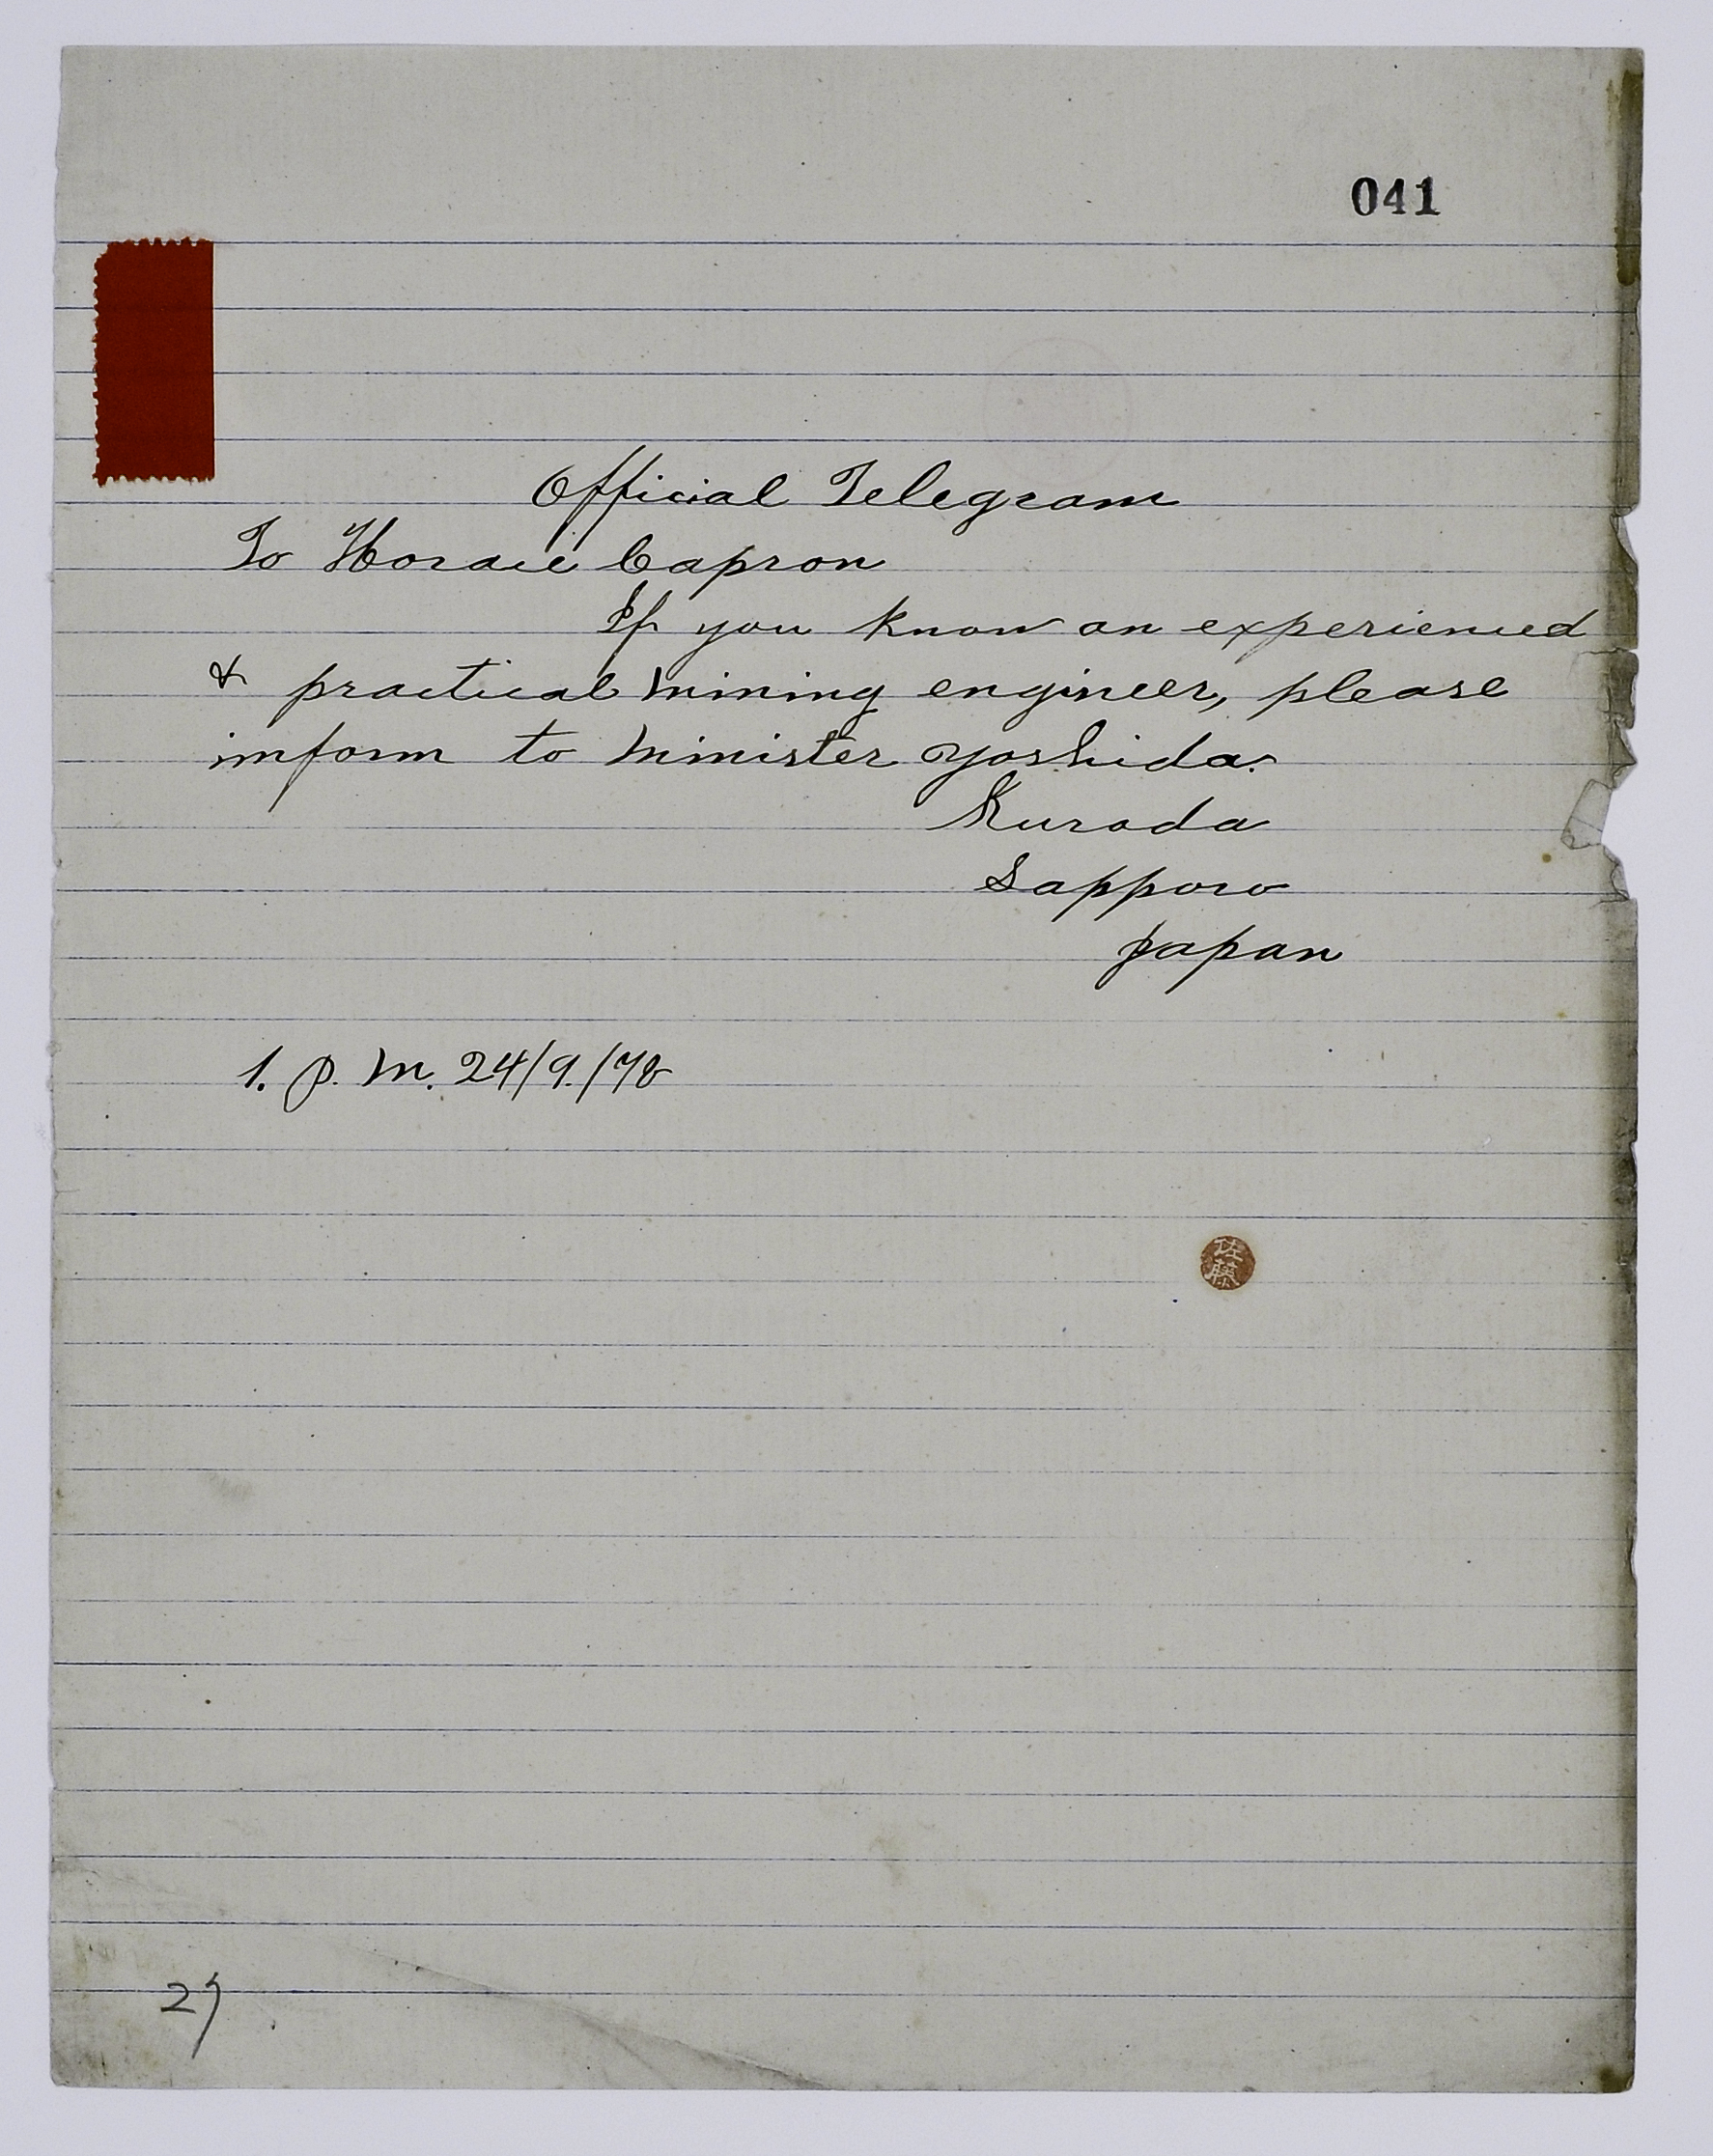 041
Official Telegram
To Horace Capron
If you know an experienced
& practical mining engineer, please
imform to Minister Yoshida.
Kuroda
Sapporo
Japan
1. P. M. 24/9./78
佐藤
27